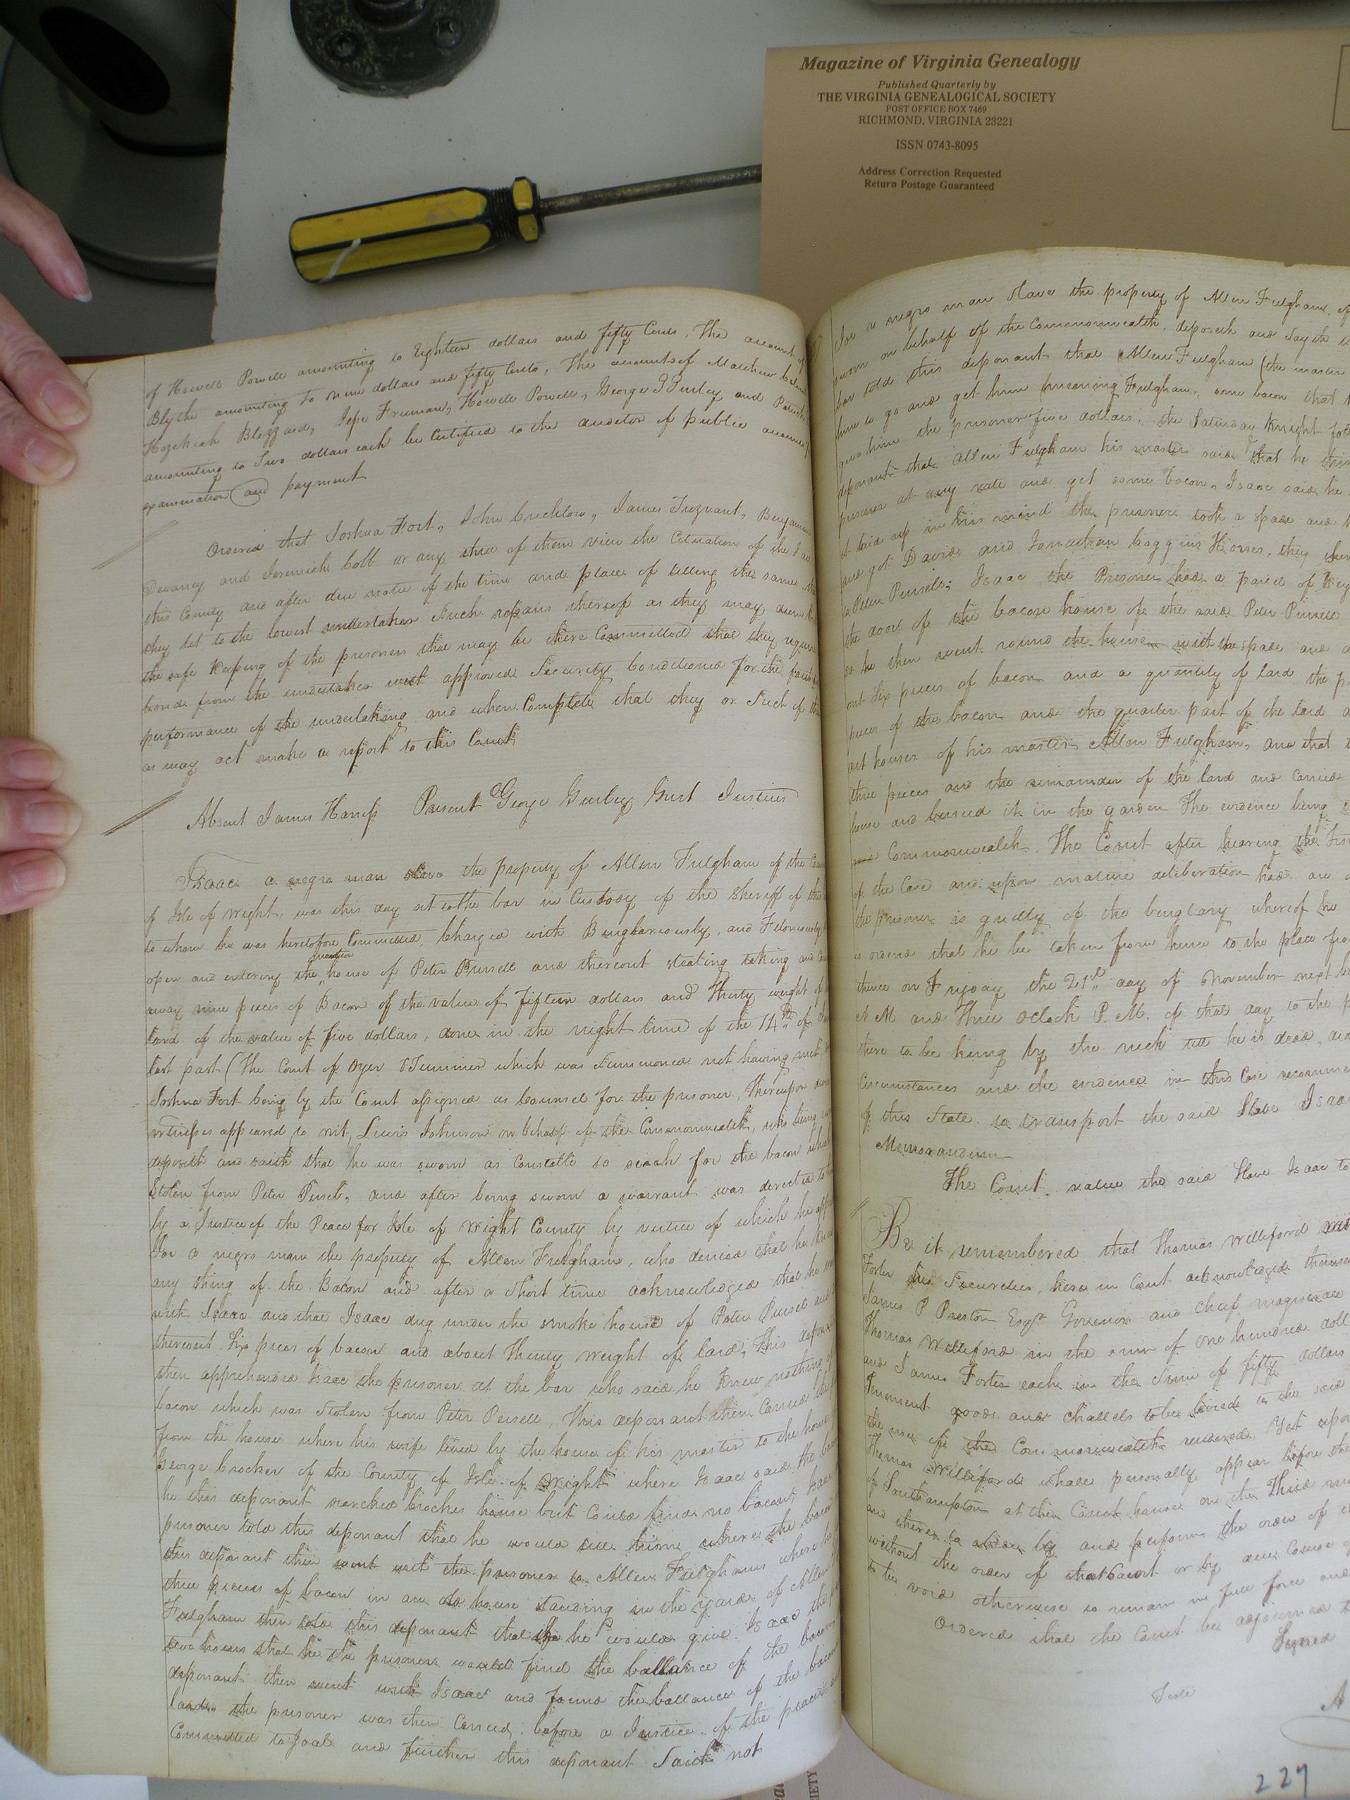 Magazine of Virginia Genealogy
Published Quarterly by
THE VIRGINIA GENEALOGICAL SOCIETY
POST OFFICE BOX 7469
RICHMOND, VIRGINIA 23221
ISSN 0743-8095
Address Correction Requested
Return Postage Guaranteed
of Howell Powell amounting to Eighteen dollars and fifty Cents, The account of
Blythe amounting to nine dollars and fifty Cents, The amounts of Matthew
Hezekiah Blizzard, Jesse Freeman, Howell Powell, George Gurley and
amounting to Two dollars each be Certified to the auditor of public accounts
examination and payment
Ordered that Joshua Fort, John Crichlow, James Trezvant, Benjamin
Devaney and Jeremiah Cobb or any three of them view the Situation of the
this County and after due notice of the time and place of letting the same
they let to the lowest undertaker Such repairs thereof as they may deem
the safe keeping of the prisoners that may be there Committed that they require
bond from the undertaker with approved Security Conditioned for the
performance of the undertaking and when Complete that they or Such of them
as may act make a report to this Court
Absent James Harris Present George Gurley Gent Justices
Isaac a negro man slave the property of Allen Fulgham of the County
of Isle of Wight, was this day set to the bar in Custody of the Sheriff of this
to whom he was heretofore Committed, Charged with Burglariously, and Feloniously
open and entering the house of Peter Pursell and thereout stealing taking and
away nine pieces of Bacon of the value of fifteen dollars and Thirty weight of
lard of the value of five dollars, done in the night time of the 14th of
last past (The Court of Oyer & Terminer which was Summoned not having met
Joshua Fort being by the Court assigned as Counsel for the prisoner, Thereupon
witnesses appeared to wit, Lewis Johnson on behalf of the Commonwealth, who being
deposeth and saith that he was sworn as Constable to search for the bacon
Stolen from Peter Pursell, and after being sworn a warrant was directed to
by a Justice of the Peace for Isle of Wight County by virtue of which he
for a negro man the property of Allen Fulgham, who denied that he knew
any thing of the Bacon and after a short time acknowledged that he
with Isaac and that Isaac dug under the smoke house of Peter Pursell and
thereout Six pieces of bacon and about Thirty weight of lard, This deponent
then apprehended Isaac the prisoner at the bar who said he Knew nothing of
bacon which was Stolen from Peter Pursell, This deponent then Carried
from the house where his wife lived by the house of his master to the house
George Crocker of the County of Isle of Wight where Isaac said the bacon
he this deponent searched Crockers house but Could find no bacon, Isaac
prisoner told this deponent that he would show him where the bacon
this deponent then went with the prisoner to Allen Fulghams where he
three pieces of bacon in an old house standing in the yard of Allen
Fulgham then told this deponent that if he would give Isaac the
two hours that he the prisoner would find the ballance of the bacon
deponent then went with Isaac and found the ballance of the bacon
lard. the prisoner was then Carried before a Justice of the peace and
Committed to Jaol and further this deponent Saith not
a negro man slave the property of Allen Fulgham,
sworn on behalf of the Commonwealth, deposeth and saith
has told this deponent that Allen Fulgham (the master
him to go and get him meaning Fulgham, some bacon that
give him the prisoner five dollars, the Saturday Knight
deponent that Allen Fulgham his master said that he
prisoner at any rate and get some bacon, Isaac said he
it laid up in his mind the prisoner took a spade and
and got David and Jonathan Goggins Horses, they then
to Peter Pursells; Isaac the Prisoner had a parcel of Keys
the door of the bacon house of the said Peter Pursell
so he then went round the house with the spade and
out Six pieces of bacon and a quantity of lard the
pieces of the bacon and the quarter part of the lard
out houses of his master, Allen Fulgham, and that
three pieces and the remainder of the lard and Carried
house and buried it in the garden The evidence being
Commonwealth. The Court after hearing the
of the Case and upon mature deliberation had are of
the prisoner is guilty of the burglary whereof he
is ordered that he be taken from hence to the place from
thence on Fryday the 21st day of November next
A M and Three oClock P. M. of that day to the
there to be hung by the neck till he is dead, and
Circumstances and the evidence in this Case recommend
of this State to transport the said Slave Isaac
Memorandum
The Court value the said Slave Isaac to
Be it remembered that Thomas Williford
Foster his Securities, here in Court acknowledged themselves
James P Preston Esqr Governor and chief magistrate
Thomas Williford in the sum of one hundred dollars
and James Foster each in the Sum of fifty dollars
Tenement goods and chattels to be levied to the said
the use of the Commonwealth rendered, Yet upon
Thomas Williford shall personally appear before the
of Southampton at the Court house on the Third
and there to abide by and perform the order of
without the order of that Court or by due Course of
to be void otherwise to remain in full force and
Ordered that the Court be adjourned
Signed
Teste
A
227